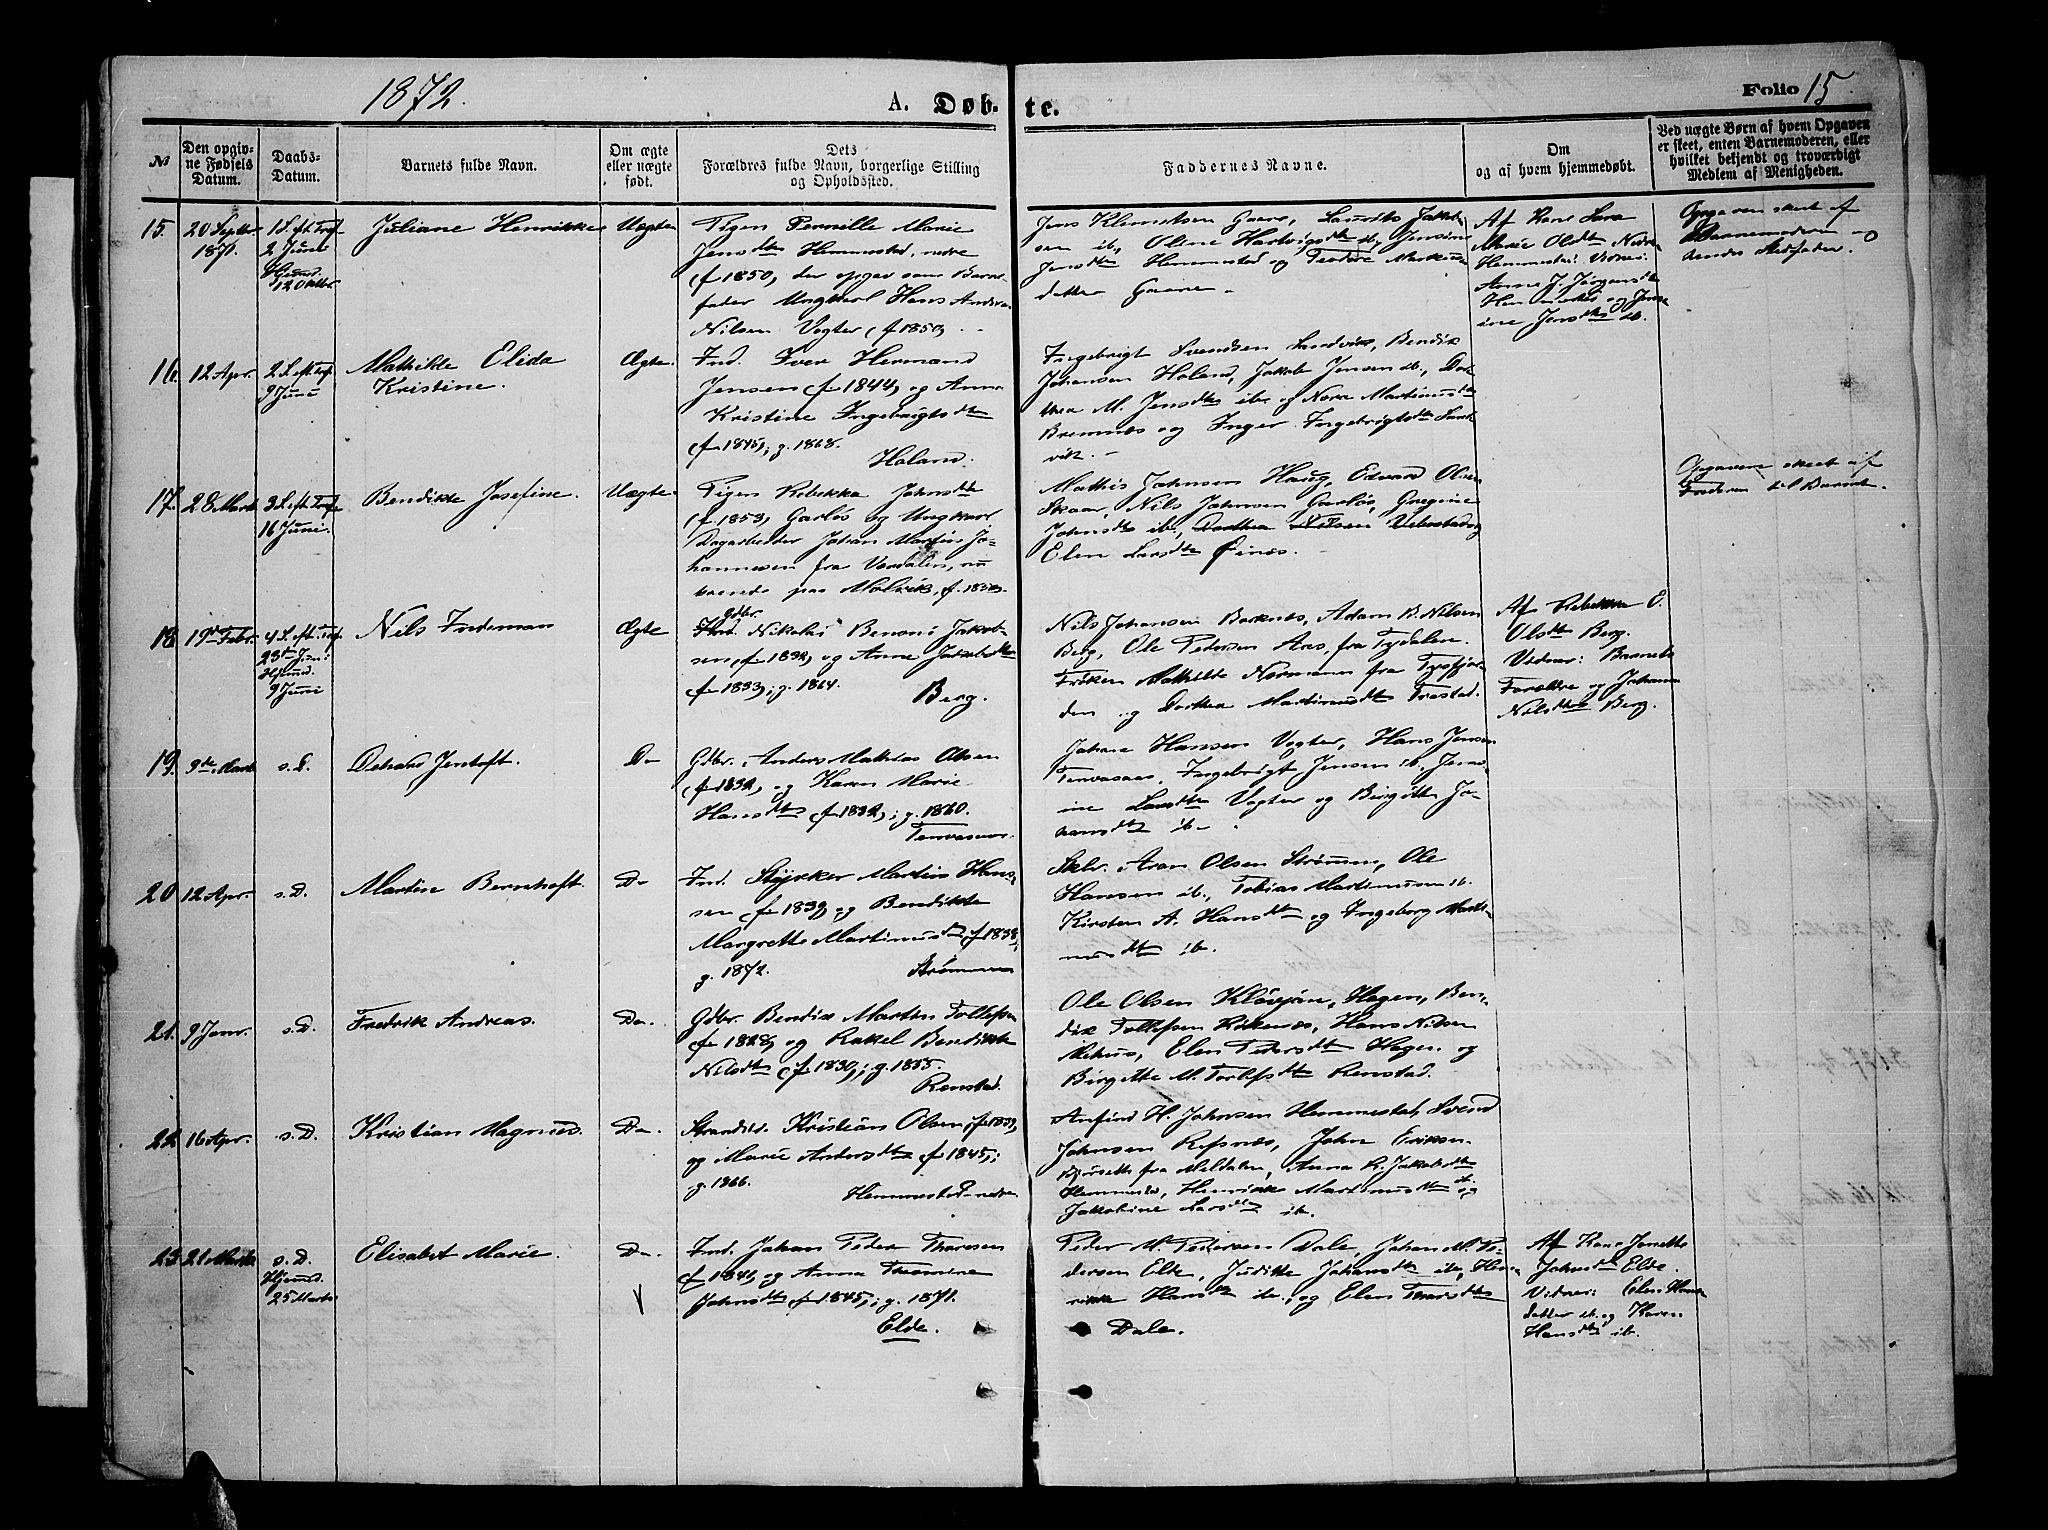 1872.
A. Døb-
te.
Folio 15.
№
Den opgiv-
ne Fødsels
Datum.
Daabs-
Datum.
Barnets fulde Navn.
Om ægte
eller uægte
født.
Dets
Forældres fulde Navn, borgerlige Stilling
og Opholdssted.
Faddernes Navne.
Om
og af hvem hjemmedøbt.
Ved uægte Børn af hvem Opgaven
er skeet, enten Barnemoderen, eller
hvilket bekjendt og troværdigt
Medlem af Menigheden.
15.
20 Septbr
1871.
1 S. eft. Tref.
2 Juni
Hjemd.
12 Oktbr
Juliane Henrikke
Uægte
Pigen Pernille Marie
Jensdtr Hemmestad, nedre
(f 1850, der opgav som Barne-
fader Ungkarl Hans Andreas
Nilsen Vogter (f 1850.
Jens Klemetsen Gaare, Laurits Jakob-
sen ib, Oline Hartvigsdtr ib, Jensine
Jensdtr Hemmestad og
datter Gaare
Af Kone Sara
Marie Olsdtr Nedre
Hemmestad. Vidner:
Anne J. Jørgensdtr
Hemmestad og Jens-
ine Jensdtr ib.
Opgaven skeet af
Barnemoderen og
hendes Stedfader.
16.
12 Apr.
2 S. eft. Tref.
9 Juni
Mathilde Elida
Kristine.
Ægte.
Ind. Iver Hermand
Jensen (f 1844, og Anna
Kristine Ingebrigtsdtr
(f 1845; g. 1868.
Holand.
Ingebrigt Svendsen Sandvik, Bendix
Johansen Holand, Jakob Jensen ib, Dor-
thea M. Jensdtr ib. og Nora Martinusdtr
Bremnes og Inger Ingebrigtsdtr Sand-
vik.
17.
28 Marts
3 S. eft. Tref.
16 Juni.
Bendikte Josefine.
Uægte.
Pigen Rebekka Johnsdtr
(f 1853, Garløs og Ungkarl
Dagarbeider Johan Martin Jo-
hannesen fra Værdalen, nu
værende paa Malvik, f. 1850.
Mathis Johnsen Haug, Edvard Olsen
Skaar, Nils Johnsen Garløs, Gregine
Johnsdtr ib, Dorthea Nilsen
Elen Larsdtr Øines.
Opgaven skeet af
Faderen til Barnet.
18.
19de Febr.
4 S. eft. Tref.
23de Juni
Hjemd.
9 Juni
Nils Indeman
Ægte
Gdbr.
Nikolai Benoni Jakob-
sen, f 1832, og Anne Jakobsdtr
(f 1833; g. 1864.
Berg.
Nils Johansen Barknes, Adam B. Nilsen
Berg, Ole Pedersen Aas, fra Tydalen.
Frøken Mathilde Normann fra Tysfjor-
den og Dorthea Martinusdtr Trastad.
Af Rebekka E.
Olsdtr Berg.
Vidner: Barnets
Forældre og Johanna
Nilsdtr Berg.
19.
9de Marts
s. D.
Jentoft.
Do
Gdbr. Anders Mathias Olsen
(f 1832, og Karen Marie
Hansdtr (f 1832; g. 1860.
Johan Hansen Vogter, Hans Jensen
Ingebrigt Jensen ib, Jens-
ine Larsdtr Vogter og Birgitte Jo-
hansdtr ib.
20
12 Apr.
s. D.
Martin Berntoft.
Do
Ind. Styrker Martin Han-
sen (f 1839, og Bendikte
Margrethe Martinusdtr (f 1838,
g. 1872.
Strømmen
Skolr. Aron Olsen Strømmen, Ole
Hansen ib, Tobias Martinusen ib.
Kirsten A. Hansdtr og Ingeborg Marti-
nusdtr ib.
21.
9 Janr.
s. D.
Fredrik Andreas.
Do.
Gdbr. Bendix Martin Tollefsen
(f 1828, og Rakel Bendikte
Nilsdtr (f 1830; g. 1855.
Renstad.
Ole Olsen Kløvjøn, Hagen, Ben-
dix Tollefsen Røkenes, Hans Nilsen
Melhus, Elen Pedersdtr Hagen og
Birgitte M. Torlefsdtr Renstad.
22
16 Apr.
s. D.
Kristian Magnus.
Do.
Strandsid. Kristian Olsen (f 1839,
og Marie Andersdtr (f 1845;
g. 1866.
Hemmestad nedre
Anfind H. Johnsen Hemmestad, Svend
Johnsen Refsnes, John Eriksen
Bjørseth fra Meldalen, Anna R. Jakobsdtr
Hemmestad, Henrikke Martinusdtr ib. og
Jakobine Larsdtr ib.
23
21 Marts
s. D.
Hjemd.
25 Marts
Elisabet Marie.
Do.
Ind. Johan Peder Tharesen
(f 1841, og Anna Thomine
Johnsdtr (f 1845; g. 1871.
Elde.
Peder M. Pedersen Dale, Johan M. Pe-
dersen Elde, Judithe Johansdtr ib, Hen-
rikke Hansdtr ib, og Elen Tharesdtr
Dale.
Af Kone Jonette
Johnsdtr Elde.
Vidner: Elen Hans-
datter ib. og Karen
Hansdtr ib.